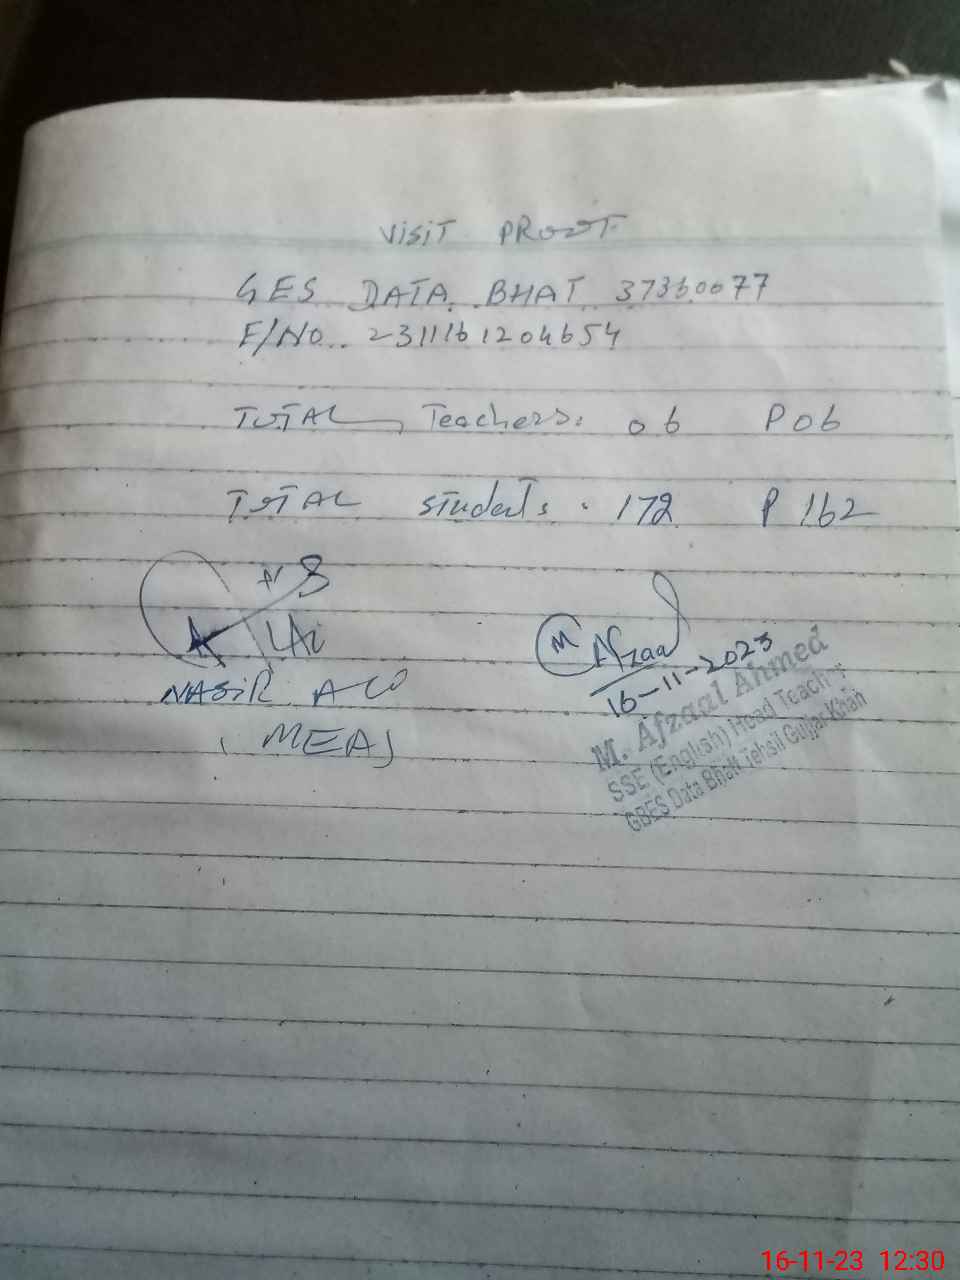 VISIT PROOF
GES DATA BHAT 37360077
E/NO.. 2311161204654
TOTAL Teachers: 06 P 06
TOTAL students: 172 P 162
NASIR ALI
(MEA)
M Afzaal
16-11-2023
M. Afzaal Ahmed
SSE (English) Head Teacher
GBES Data Bhatt Tehsil Gujjar Khan
16-11-23 12:30